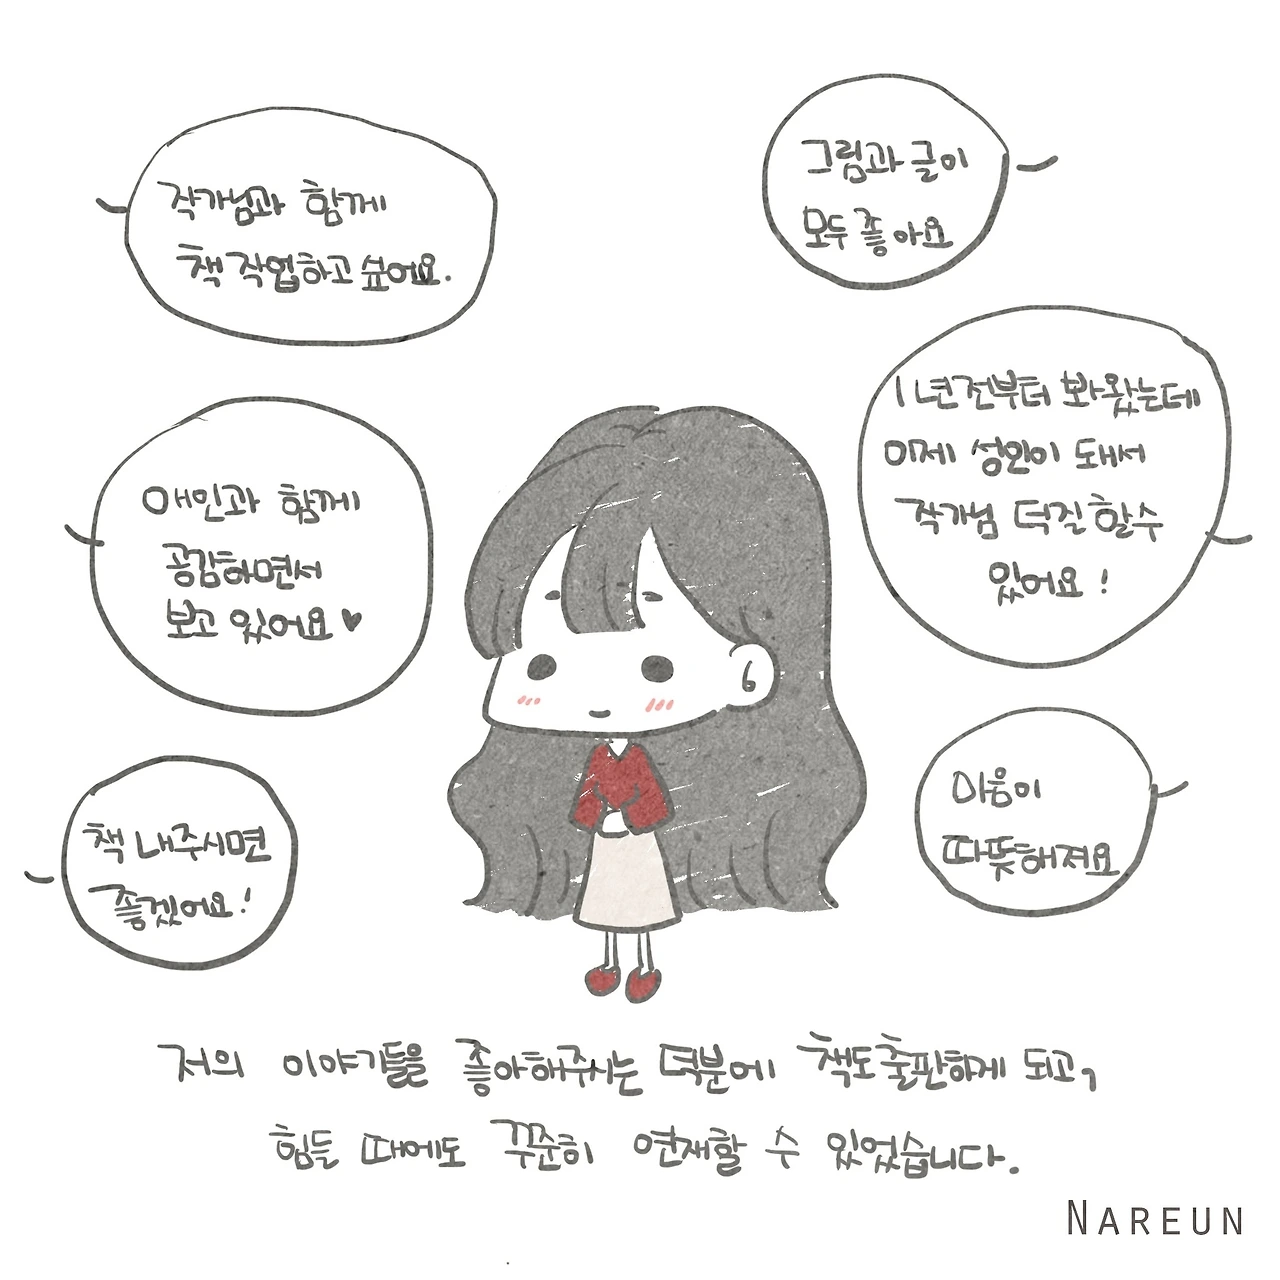 작가님과 함께
책 작업하고 싶어요.
그림과 글이
모두 좋아요
애인과 함께
공감하면서
보고 있어요♥
1년전부터 봐왔는데
이제 성인이 돼서
작가님 덕질 할수
있어요!
책 내주시면
좋겠어요!
마음이
따뜻해져요
저의 이야기들을 좋아해주시는 덕분에 책도 출판하게 되고,
힘들 때에도 꾸준히 연재할 수 있었습니다.
NAREUN